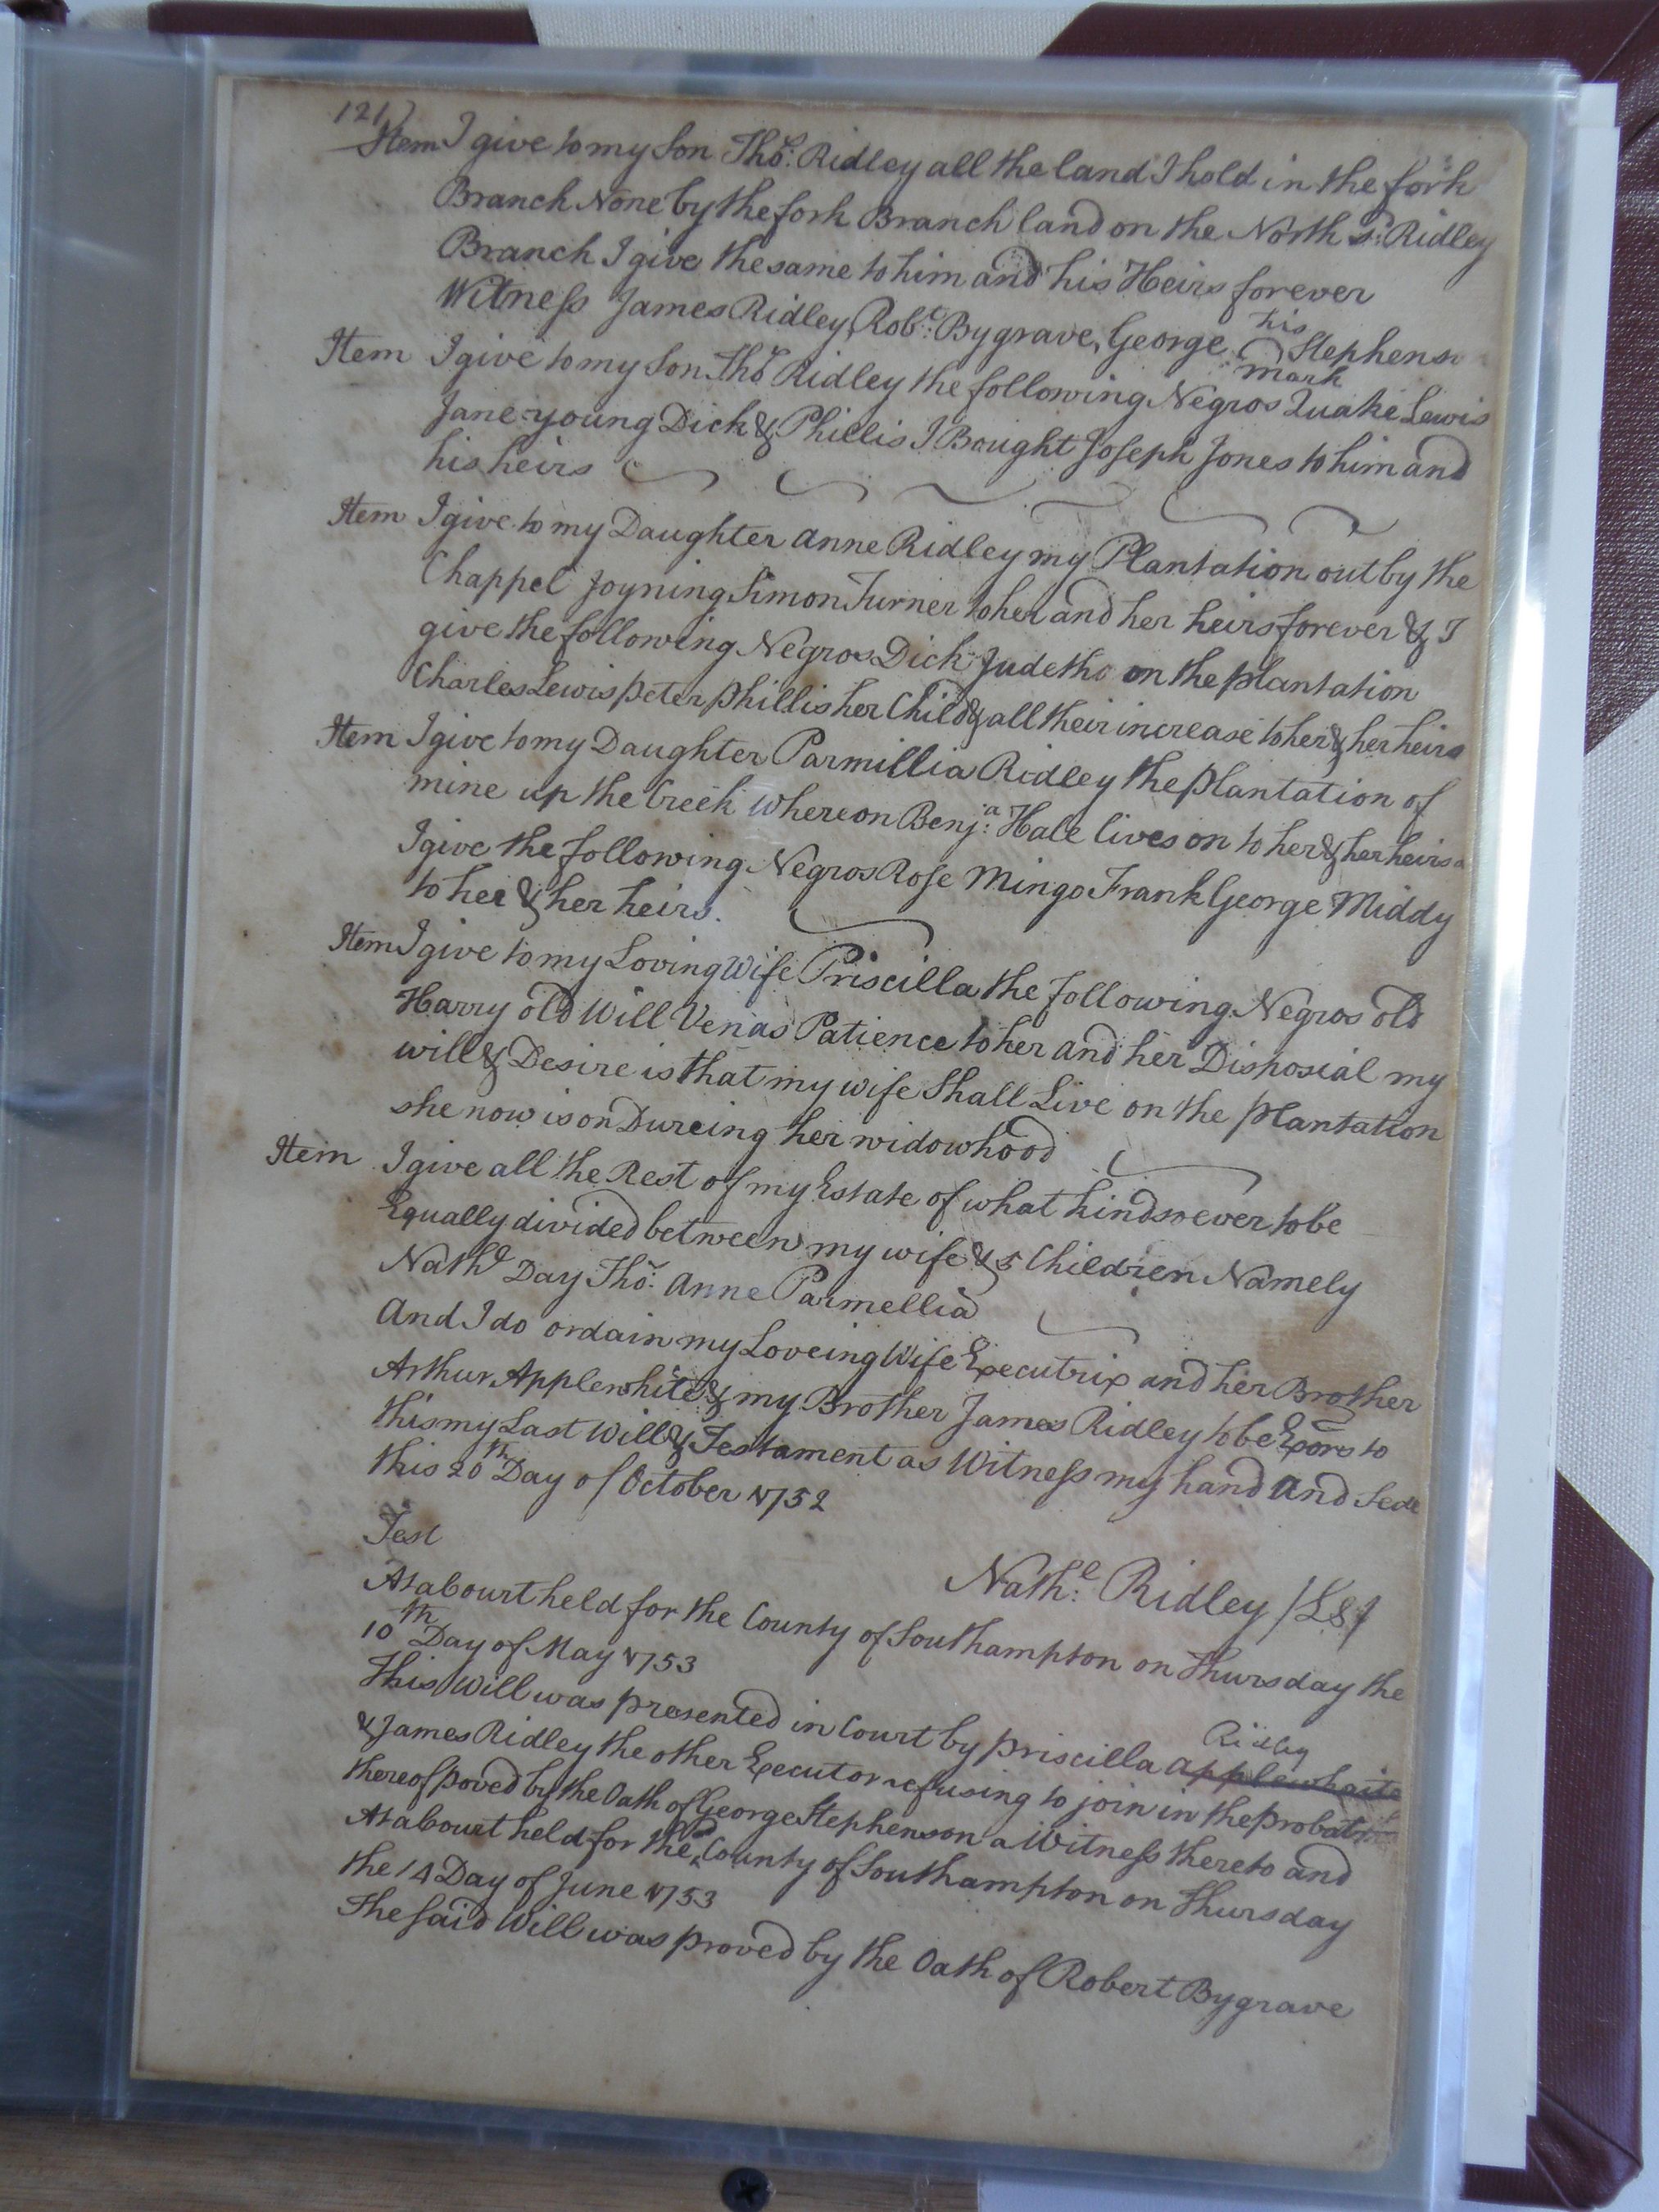 121)
Item I give to my Son Thos: Ridley all the land I hold in the fork
Branch None by the fork Branch land on the North Sd: Ridley
Branch I give the same to him and his Heirs forever
Witness James Ridley, Robt: Bygrave, George his mark Stephenson
Item I give to my Son Thos Ridley the following Negros Quake Lewis
Jane young Dick & Phillis I Bought Joseph Jones to him and
his heirs
Item I give to my Daughter Anne Ridley my Plantation out by the
Chappel Joyning Simon Turner to her and her heirs forever & I
give the following Negros Dick Jude tho on the plantation
Charles Lewis peter phillis her Child & all their increase to her & her heirs
Item I give to my Daughter Parmillia Ridley the plantation of
mine up the Creek whereon Benja: Hale lives on to her & her heirs
I give the following Negros Rose Mingo Frank George Middy
to her & her heirs.
Item I give to my Loving Wife Priscilla the following Negros old
Harry old Will Venas Patience to her and her Disposial my
will & Desire is that my wife Shall Live on the plantation
she now is on Dureing her widowhood
Item I give all the Rest of my Estate of what kindsoever to be
Equally divided between my wife & 5 Children Namely
Nathl Day Thos: Anne Parmellia
And I do ordain my Loveing Wife Executrix and her Brother
Arthur Applewhite & my Brother James Ridley to be Exors to
this my Last Will & Testament as Witness my hand and Seal
this 20th Day of October 1752
Test
Nathl: Ridley /LS/
At a Court held for the County of Southampton on Thursday the
10th Day of May 1753
This Will was presented in Court by priscilla Applewhaite Ridley
& James Ridley the other Executor refusing to join in the probat
thereof poved by the Oath of George Stephenson a Witness thereto and
At a Court held for the County of Southampton on Thursday
the 14 Day of June 1753
The said Will was proved by the Oath of Robert Bygrave